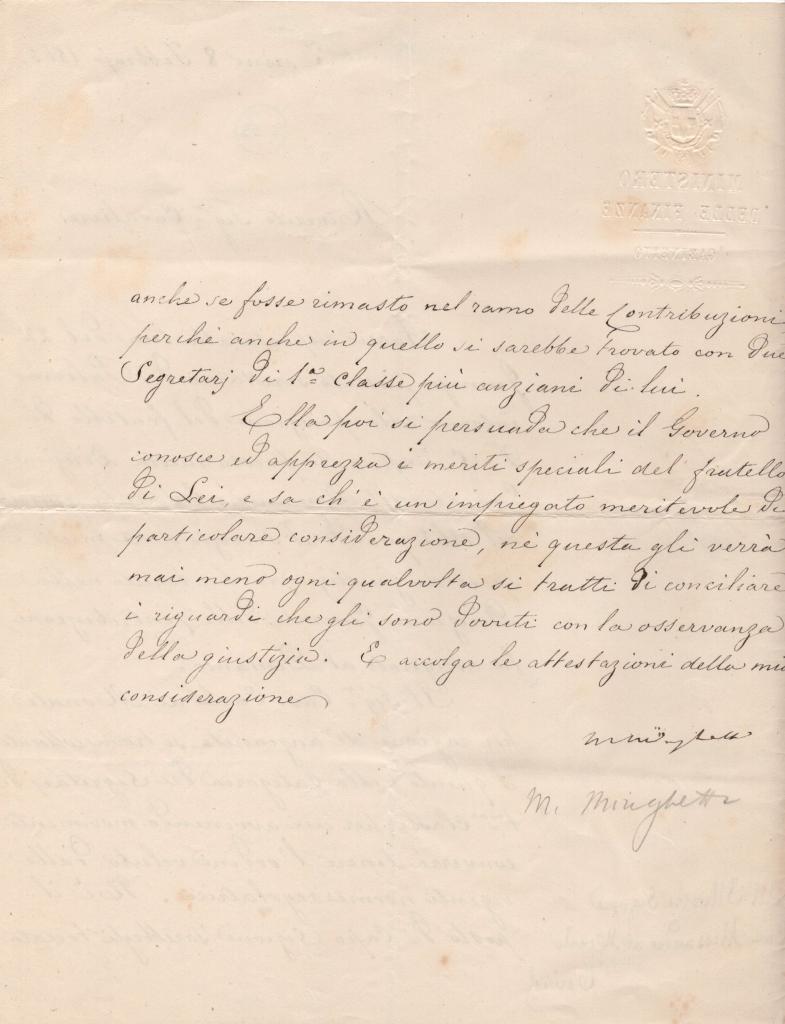 MINISTERO
DELLE FINANZE
GABINETTO
anche se fosse rimasto nel ramo delle Contribuzioni,
perchè anche in quello si sarebbe trovato con due
Segretarj di 1.ª classe più anziani di lui.
Ella poi si persuada che il Governo
conosce ed apprezza i meriti speciali del fratello
di Lei, e sa ch'è un impiegato meritevole di
particolare considerazione, nè questa gli verrà
mai meno ogni qualvolta si tratti di conciliare
i riguardi che gli sono dovuti con la osservanza
della giustizia. E accolga le attestazioni della mia
considerazione
Minghetti
M. Minghetti